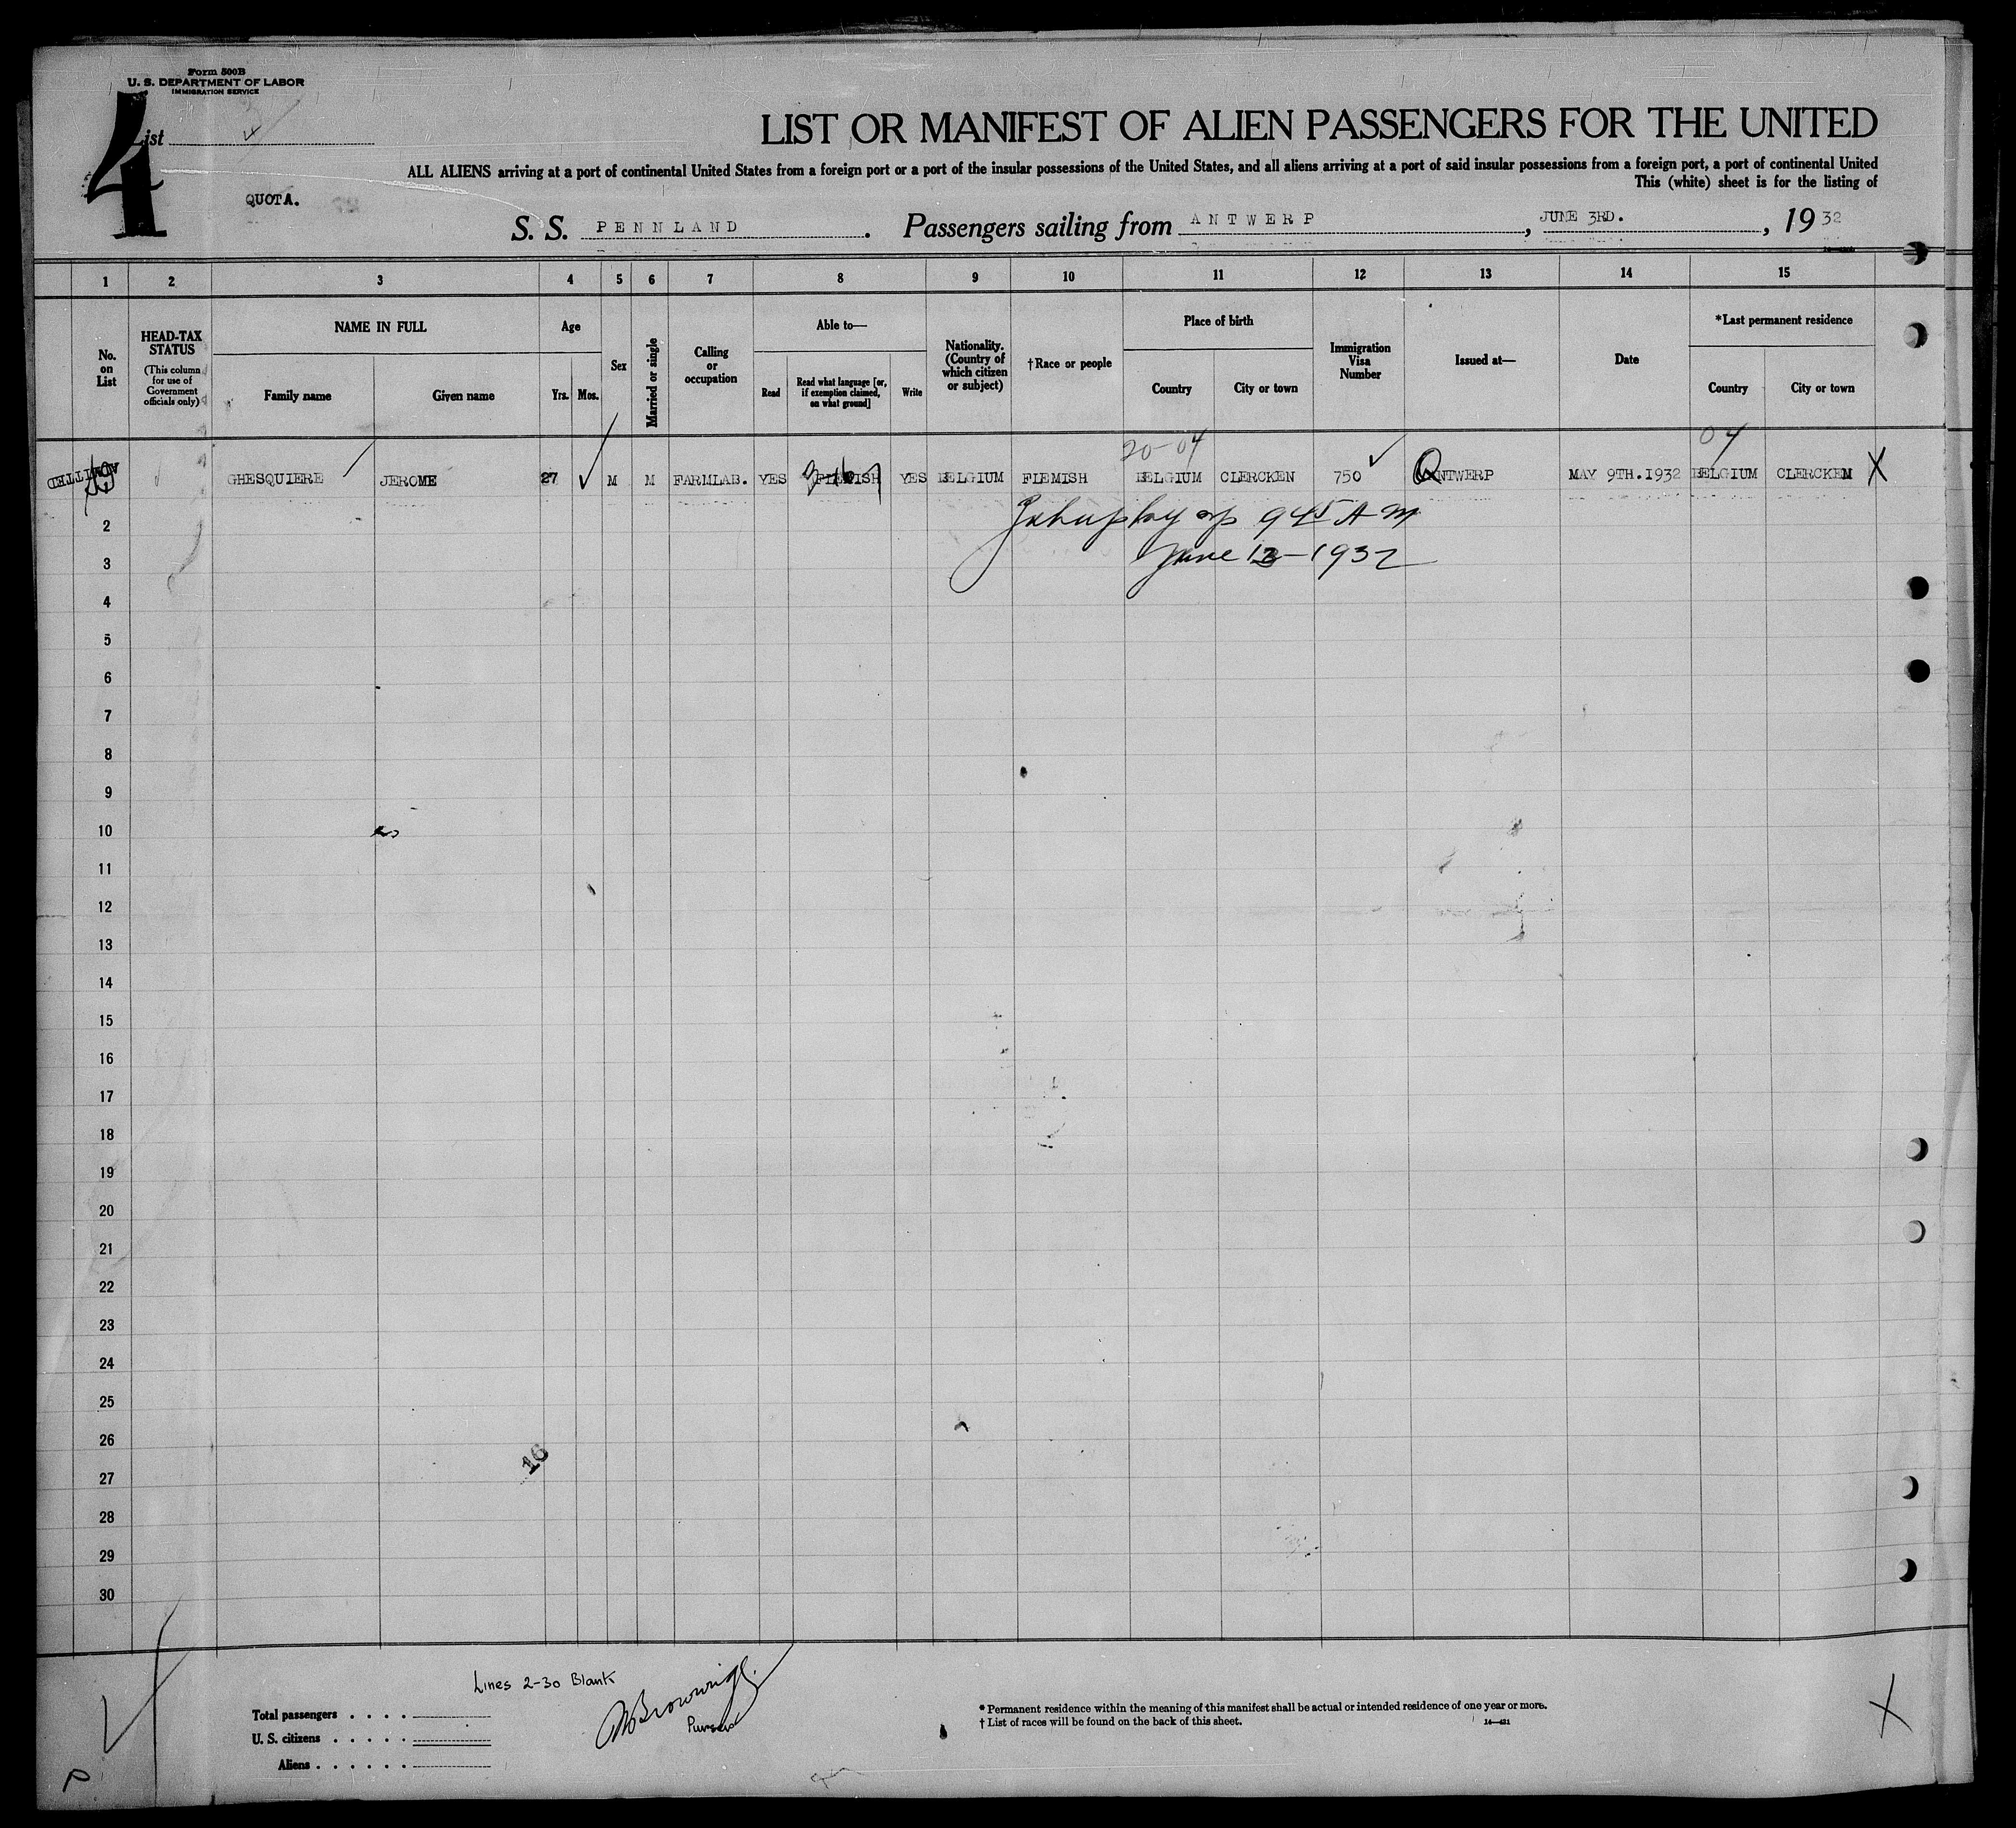 Form 500B
U. S. DEPARTMENT OF LABOR
IMMIGRATION SERVICE
4
List 4
LIST OR MANIFEST OF ALIEN PASSENGERS FOR THE UNITED
ALL ALIENS arriving at a port of continental United States from a foreign port or a port of the insular possessions of the United States, and all aliens arriving at a port of said insular possessions from a foreign port, a port of continental United
This (white) sheet is for the listing of
QUOTA.
S. S. PENNLAND. Passengers sailing from ANTWERP, JUNE 3RD., 1932
1 2 3 4 5 6 7 8 9 10 11 12 13 14 15
No. on List
HEAD-TAX STATUS
(This column for use of Government officials only)
NAME IN FULL
Family name
Given name
Age
Yrs. Mos.
Sex
Married or single
Calling or occupation
Able to—
Read
Read what language [or, if exemption claimed, on what ground]
Write
Nationality. (Country of which citizen or subject)
†Race or people
Place of birth
Country
City or town
Immigration Visa Number
Issued at—
Date
*Last permanent residence
Country
City or town
20-04
04
ADMITTED GHESQUIERE JEROME 27 M M FARMLAB. YES FLEMISH YES BELGIUM FLEMISH BELGIUM CLERCKEN 750 ANTWERP MAY 9TH.1932 BELGIUM CLERCKEN X
2
945 A-M
3
June 13-1932
4
5
6
7
8
9
10
11
12
13
14
15
16
17
18
19
20
21
22
23
24
25
26
16
27
28
29
30
Lines 2-30 Blank
Total passengers
U. S. citizens
Aliens
Purser
* Permanent residence within the meaning of this manifest shall be actual or intended residence of one year or more.
† List of races will be found on the back of this sheet.
X